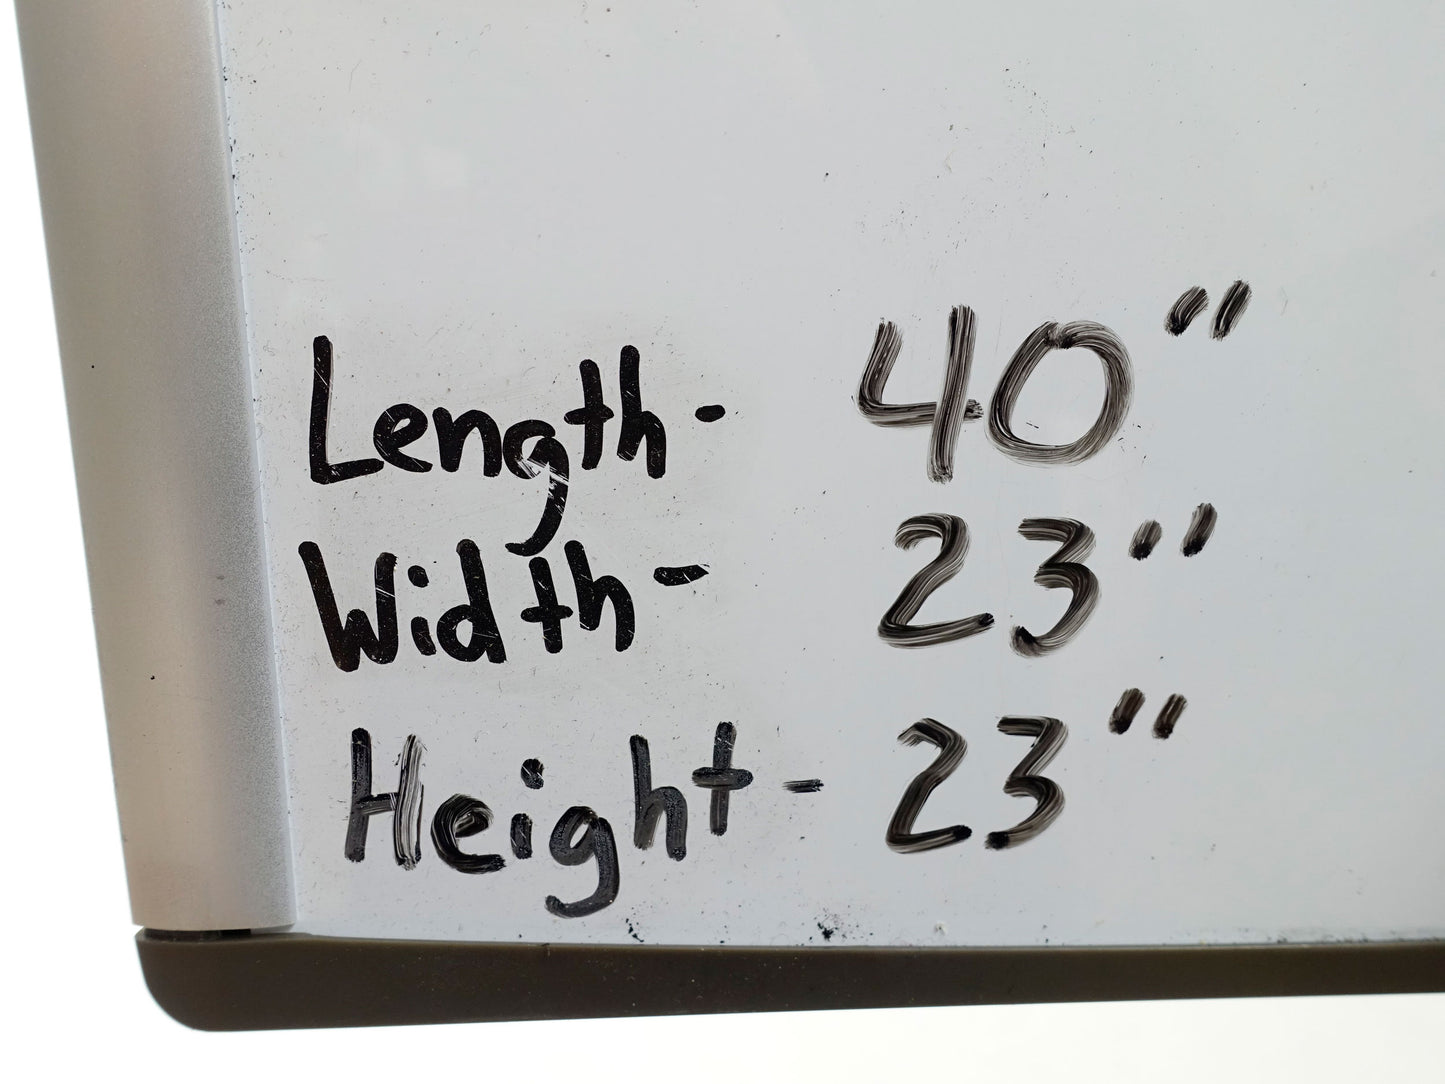 Length- 40"
Width- 23"
Height- 23"